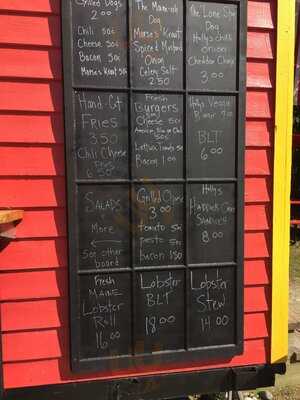 Grilled Dogs
2.00
Chili 50¢
Cheese 50¢
Bacon 50¢
Morse's Kraut 50¢
The Maine-iac
Dog
Morse's Kraut
Spiced Mustard
Onion
Celery Salt
2.50
The Lone Star
Dog
Holly's chili
onion
Cheddar Cheese
3.00
Hand-Cut
Fries
3.50
Chili Cheese
Fries
6.50
Fresh
Burgers
5.00
Cheese 50¢
American, Blue or Chili
50¢
Lettuce, Tomato 50¢
Bacon 1.00
Holly's Veggie
Burger 7.00
BLT
6.00
Salads
More
See other
board
Grilled Cheese
3.00
tomato 50¢
pesto 50¢
bacon 1.50
Holly's
Haddock Cake
Sandwich
8.00
Fresh
Maine
Lobster
Roll
16.00
Lobster
BLT
18.00
Lobster
Stew
14.00